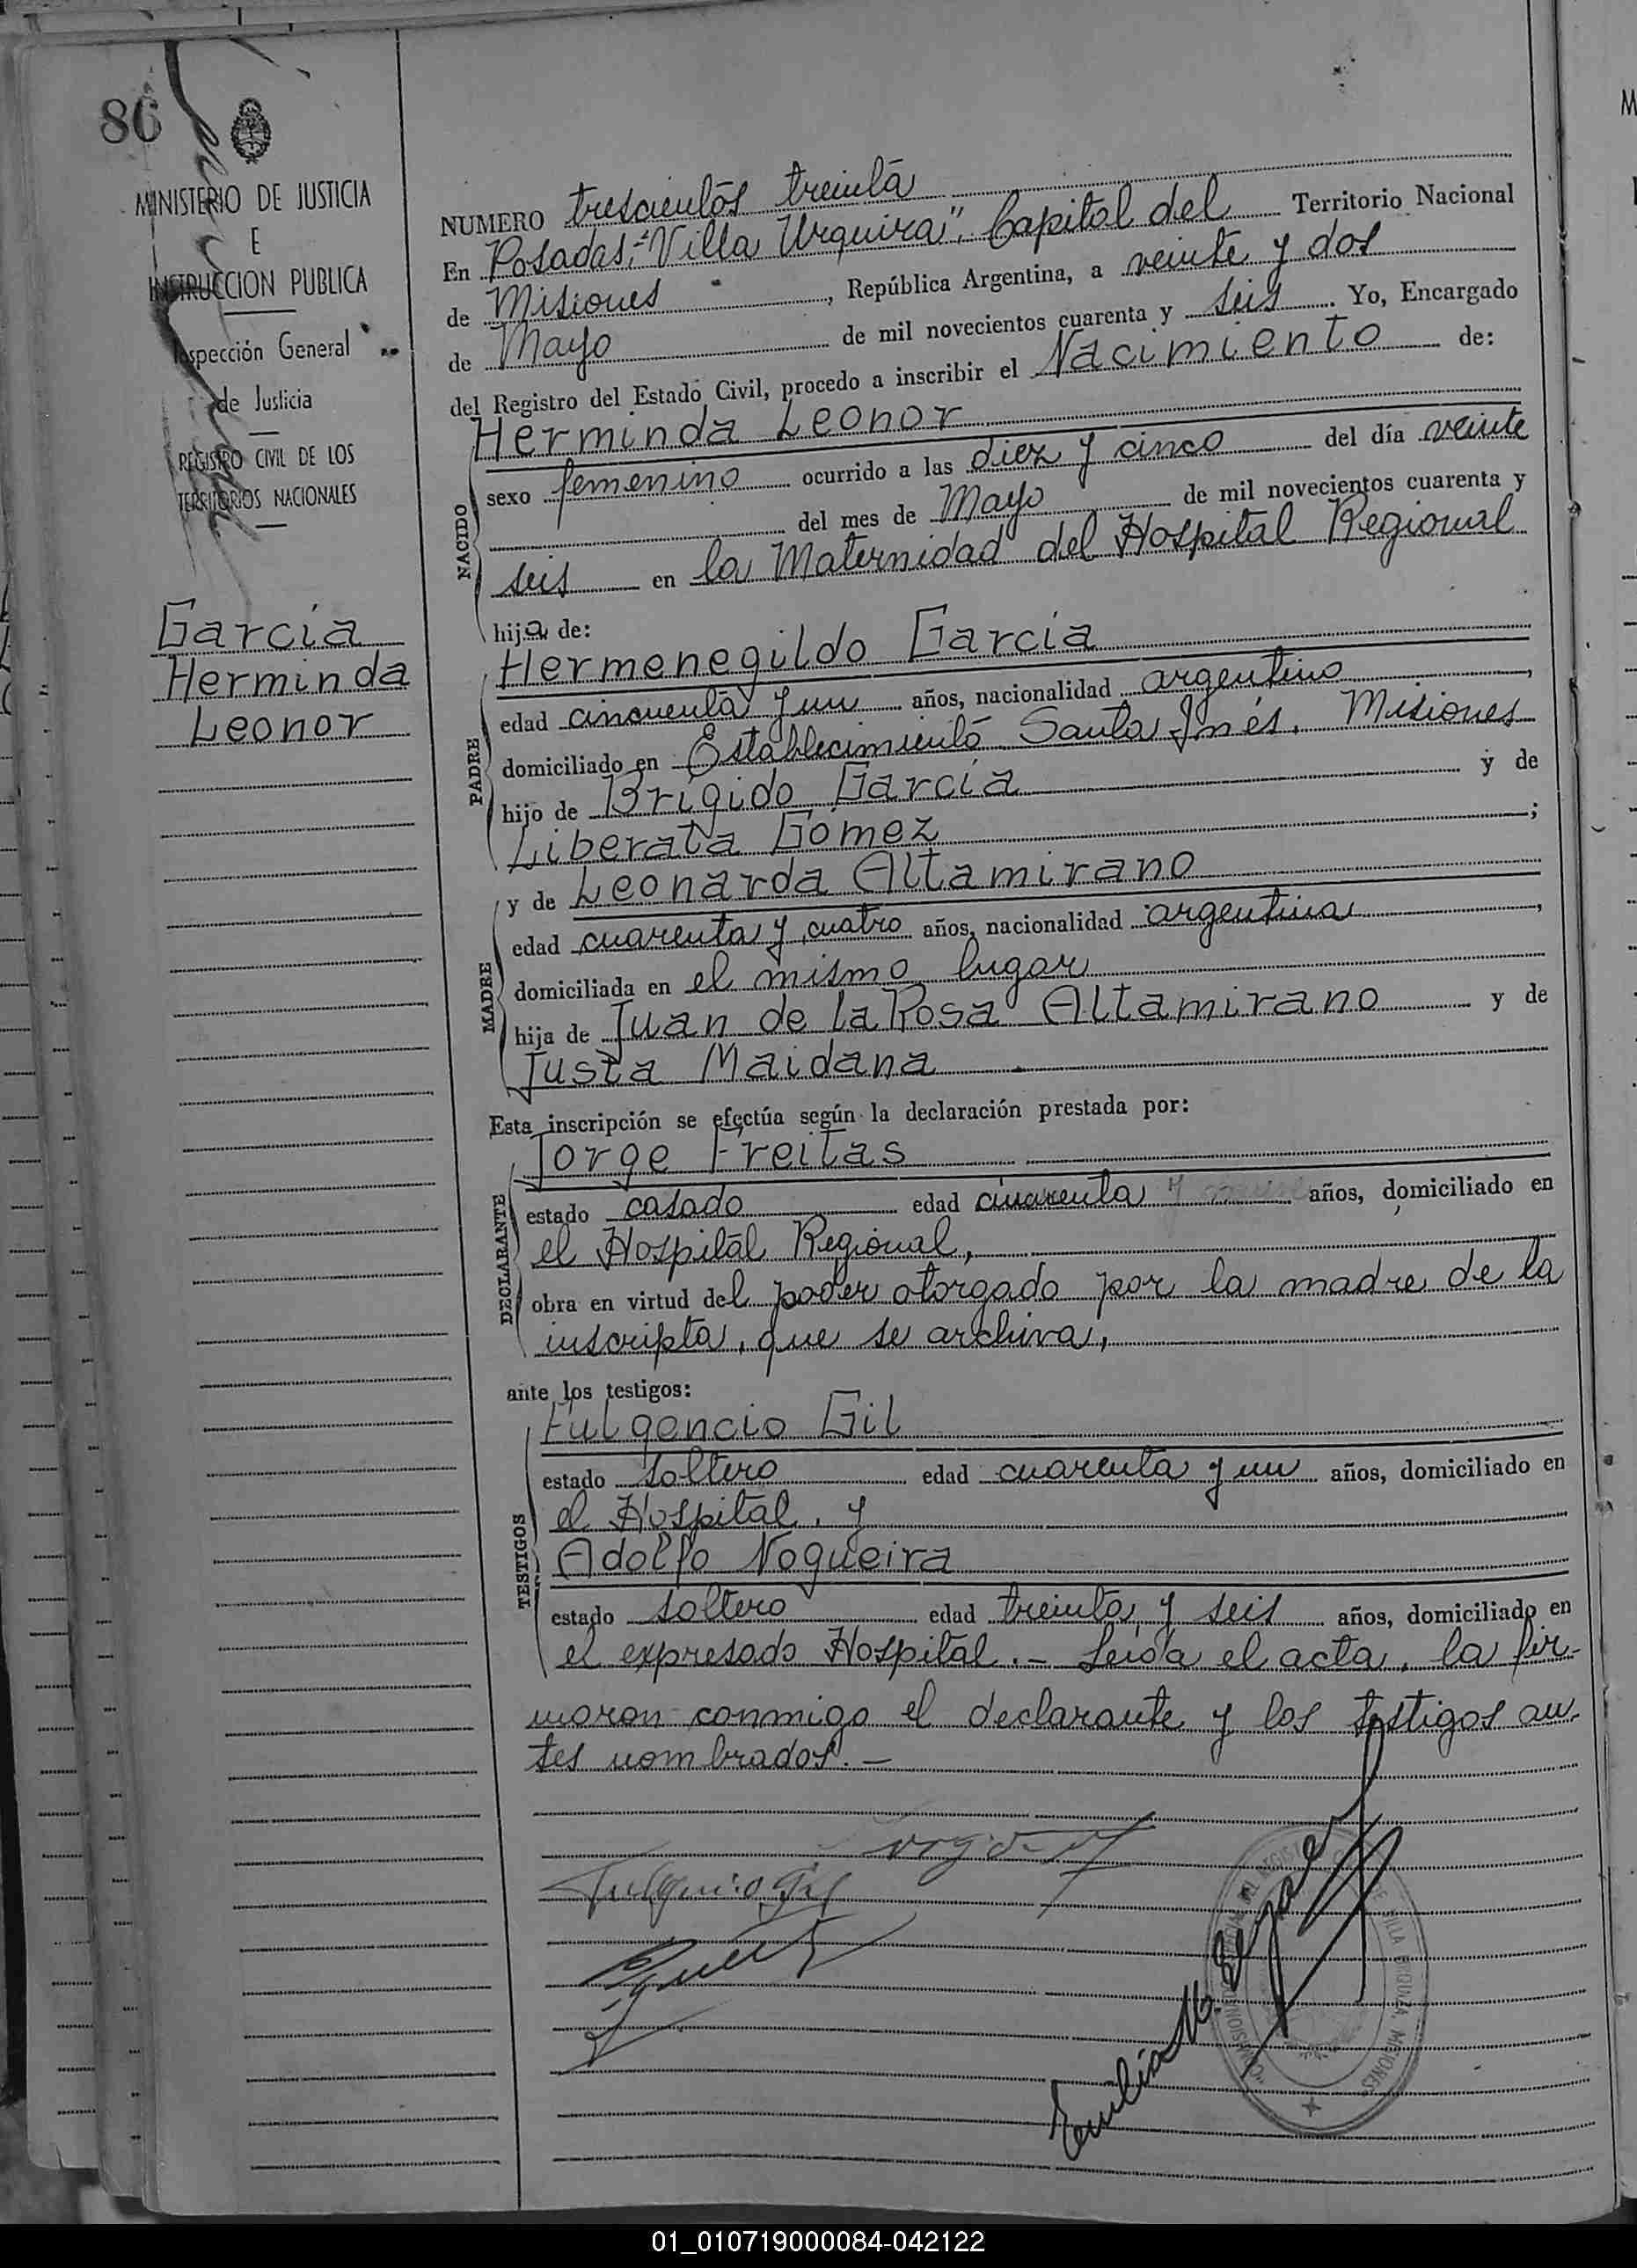 86
MINISTERIO DE JUSTICIA
E
INSTRUCCION PUBLICA
Inspección General
de Justicia
REGISTRO CIVIL DE LOS
TERRITORIOS NACIONALES
García
Herminda
Leonor
NUMERO trescientos treinta
En Posadas, "Villa Urquiza", Capital del Territorio Nacional
de Misiones, República Argentina, a veinte y dos
de Mayo de mil novecientos cuarenta y seis. Yo, Encargado
del Registro del Estado Civil, procedo a inscribir el Nacimiento de:
NACIDO
Herminda Leonor
sexo femenino ocurrido a las diez y cinco del día veinte
del mes de Mayo de mil novecientos cuarenta y
seis en la Maternidad del Hospital Regional
hija de:
PADRE
Hermenegildo García
edad cincuenta y un años, nacionalidad argentino,
domiciliado en Establecimiento Santa Inés. Misiones
hijo de Brígido García y de
Liberata Gómez;
MADRE
y de Leonarda Altamirano
edad cuarenta y cuatro años, nacionalidad argentina,
domiciliada en el mismo lugar
hija de Juan de la Rosa Altamirano y de
Justa Maidana
Esta inscripción se efectúa según la declaración prestada por:
DECLARANTE
Jorge Freitas
estado casado edad cuarenta y años, domiciliado en
el Hospital Regional,
obra en virtud del poder otorgado por la madre de la
inscripta, que se archiva,
ante los testigos:
TESTIGOS
Fulgencio Gil
estado soltero edad cuarenta y un años, domiciliado en
el Hospital, y
Adolfo Nogueira
estado soltero edad treinta y seis años, domiciliado en
el expresado Hospital.- Leída el acta, la fir-
maron conmigo el declarante y los testigos an-
tes nombrados.-
Fulgencio Gil
Emilia M.
VILLA URQUIZA, MISIONES
01_010719000084-042122